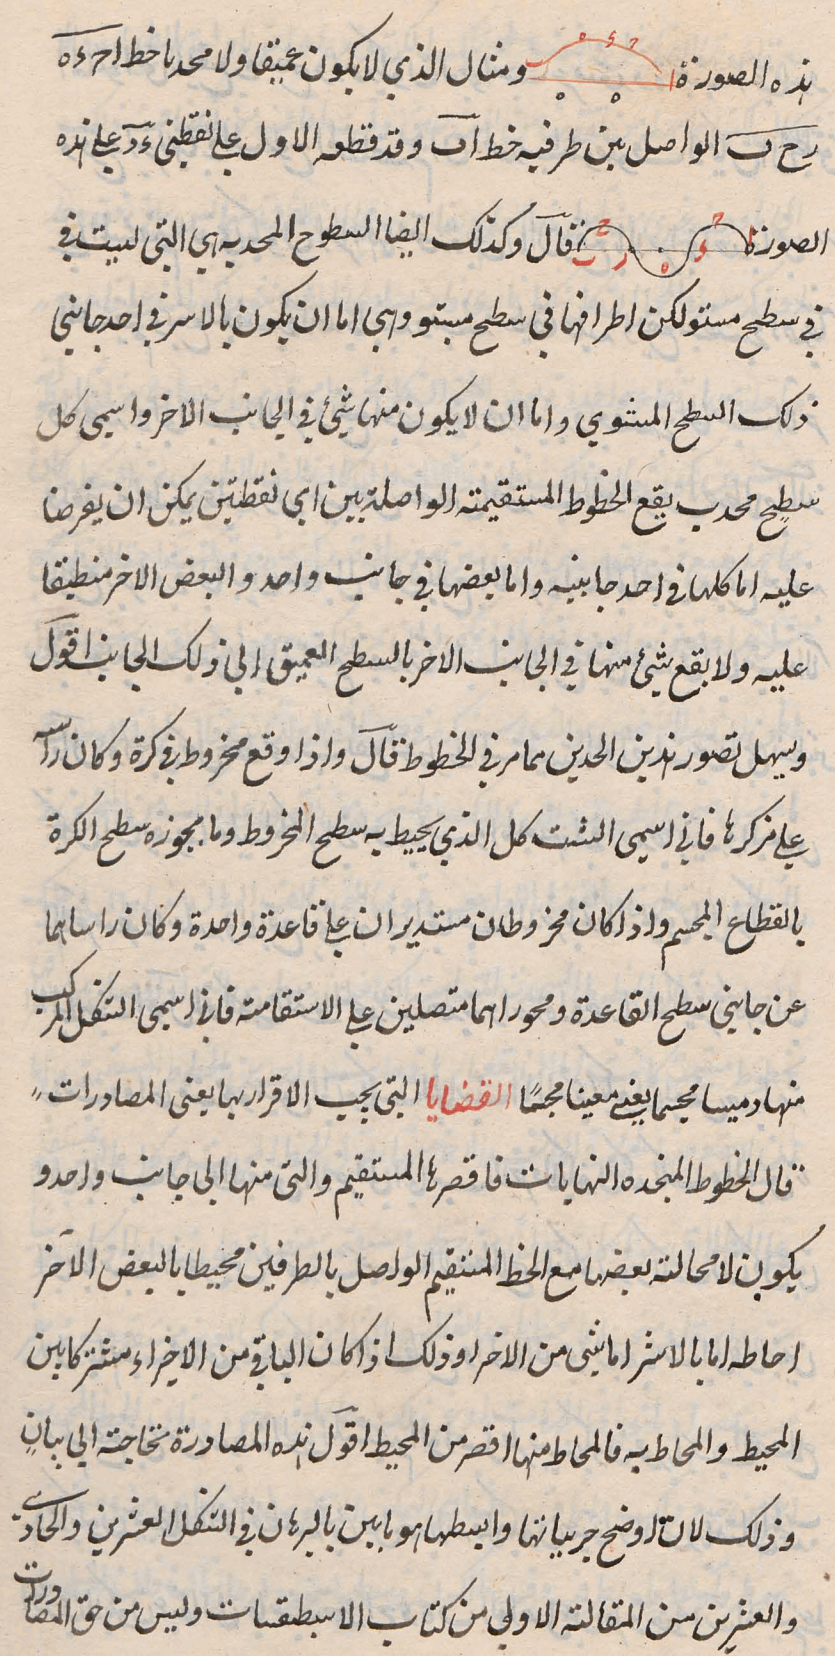 هذه الصورة ومثال الذي لا يكون عميقا ولا محدبا خط ا ح ء ه
رح ب الواصل بين طرفيه خط اب وقد قطعه الاول على نقطتي ء د على هذه
الصورة قال وكذلك ايضا السطوح المحدبه هي التي ليست في
في سطح مستو لكن اطرافها في سطح مستو وهي اما ان يكون بالاسر في احد جانبي
ذلك السطح المستوي واما ان لا يكون منها شيئ في الجانب الاخر واسمي كل
سطح محدب يقع الخطوط المستقيمته الواصلة بين اي نقطتين يمكن ان يفرضا
عليه اما كلها في احد جانبيه واما بعضها في جانب واحد والبعض الاخر منطبقا
عليه ولا يقع شيئ منها في الجانب الاخر بالسطح العميق الى ذلك الجانب اقول
ويسهل تصور هذين الحدين مما مر في الخطوط قال واذا وقع مخروط في كرة وكان راسه
على مركزها فاني اسمي الشكل الذي يحيط به سطح المخروط وما يجوزه سطح الكرة
بالقطاع المجسم واذا كان مخروطان مستديران على قاعدة واحدة وكان راساهما
عن جانبي سطح القاعدة ومحوراهما متصلين على الاستقامته فاني اسمي الشكل المركب
منهاد ميسا مجسما يعني معينا مجسمًا القضايا التي يجب الاقرار بها يعني المصادرات
قال الخطوط المتحده النهايات فاقصرها المستقيم والتي منها الى جانب واحد و
يكون لا محالته بعضها مع الخط المستقيم الواصل بالطرفين محيطا بالبعض الآخر
احاطه اما بالاسر اما بشي من الاخر وذلك اذا كان الباقي من الاجزاء مشتركا بين
المحيط والمحاط به فالمحاط منها اقصر من المحيط اقول هذه المصادرة محتاجته الى بيان
وذلك لان اوضح جزئياتها وابسطها هو ما بين بالبرهان في الشكل العشرين والحادي
والعشرين من المقالته الاولى من كتاب الاسطقسات وليس من حق المصادرات